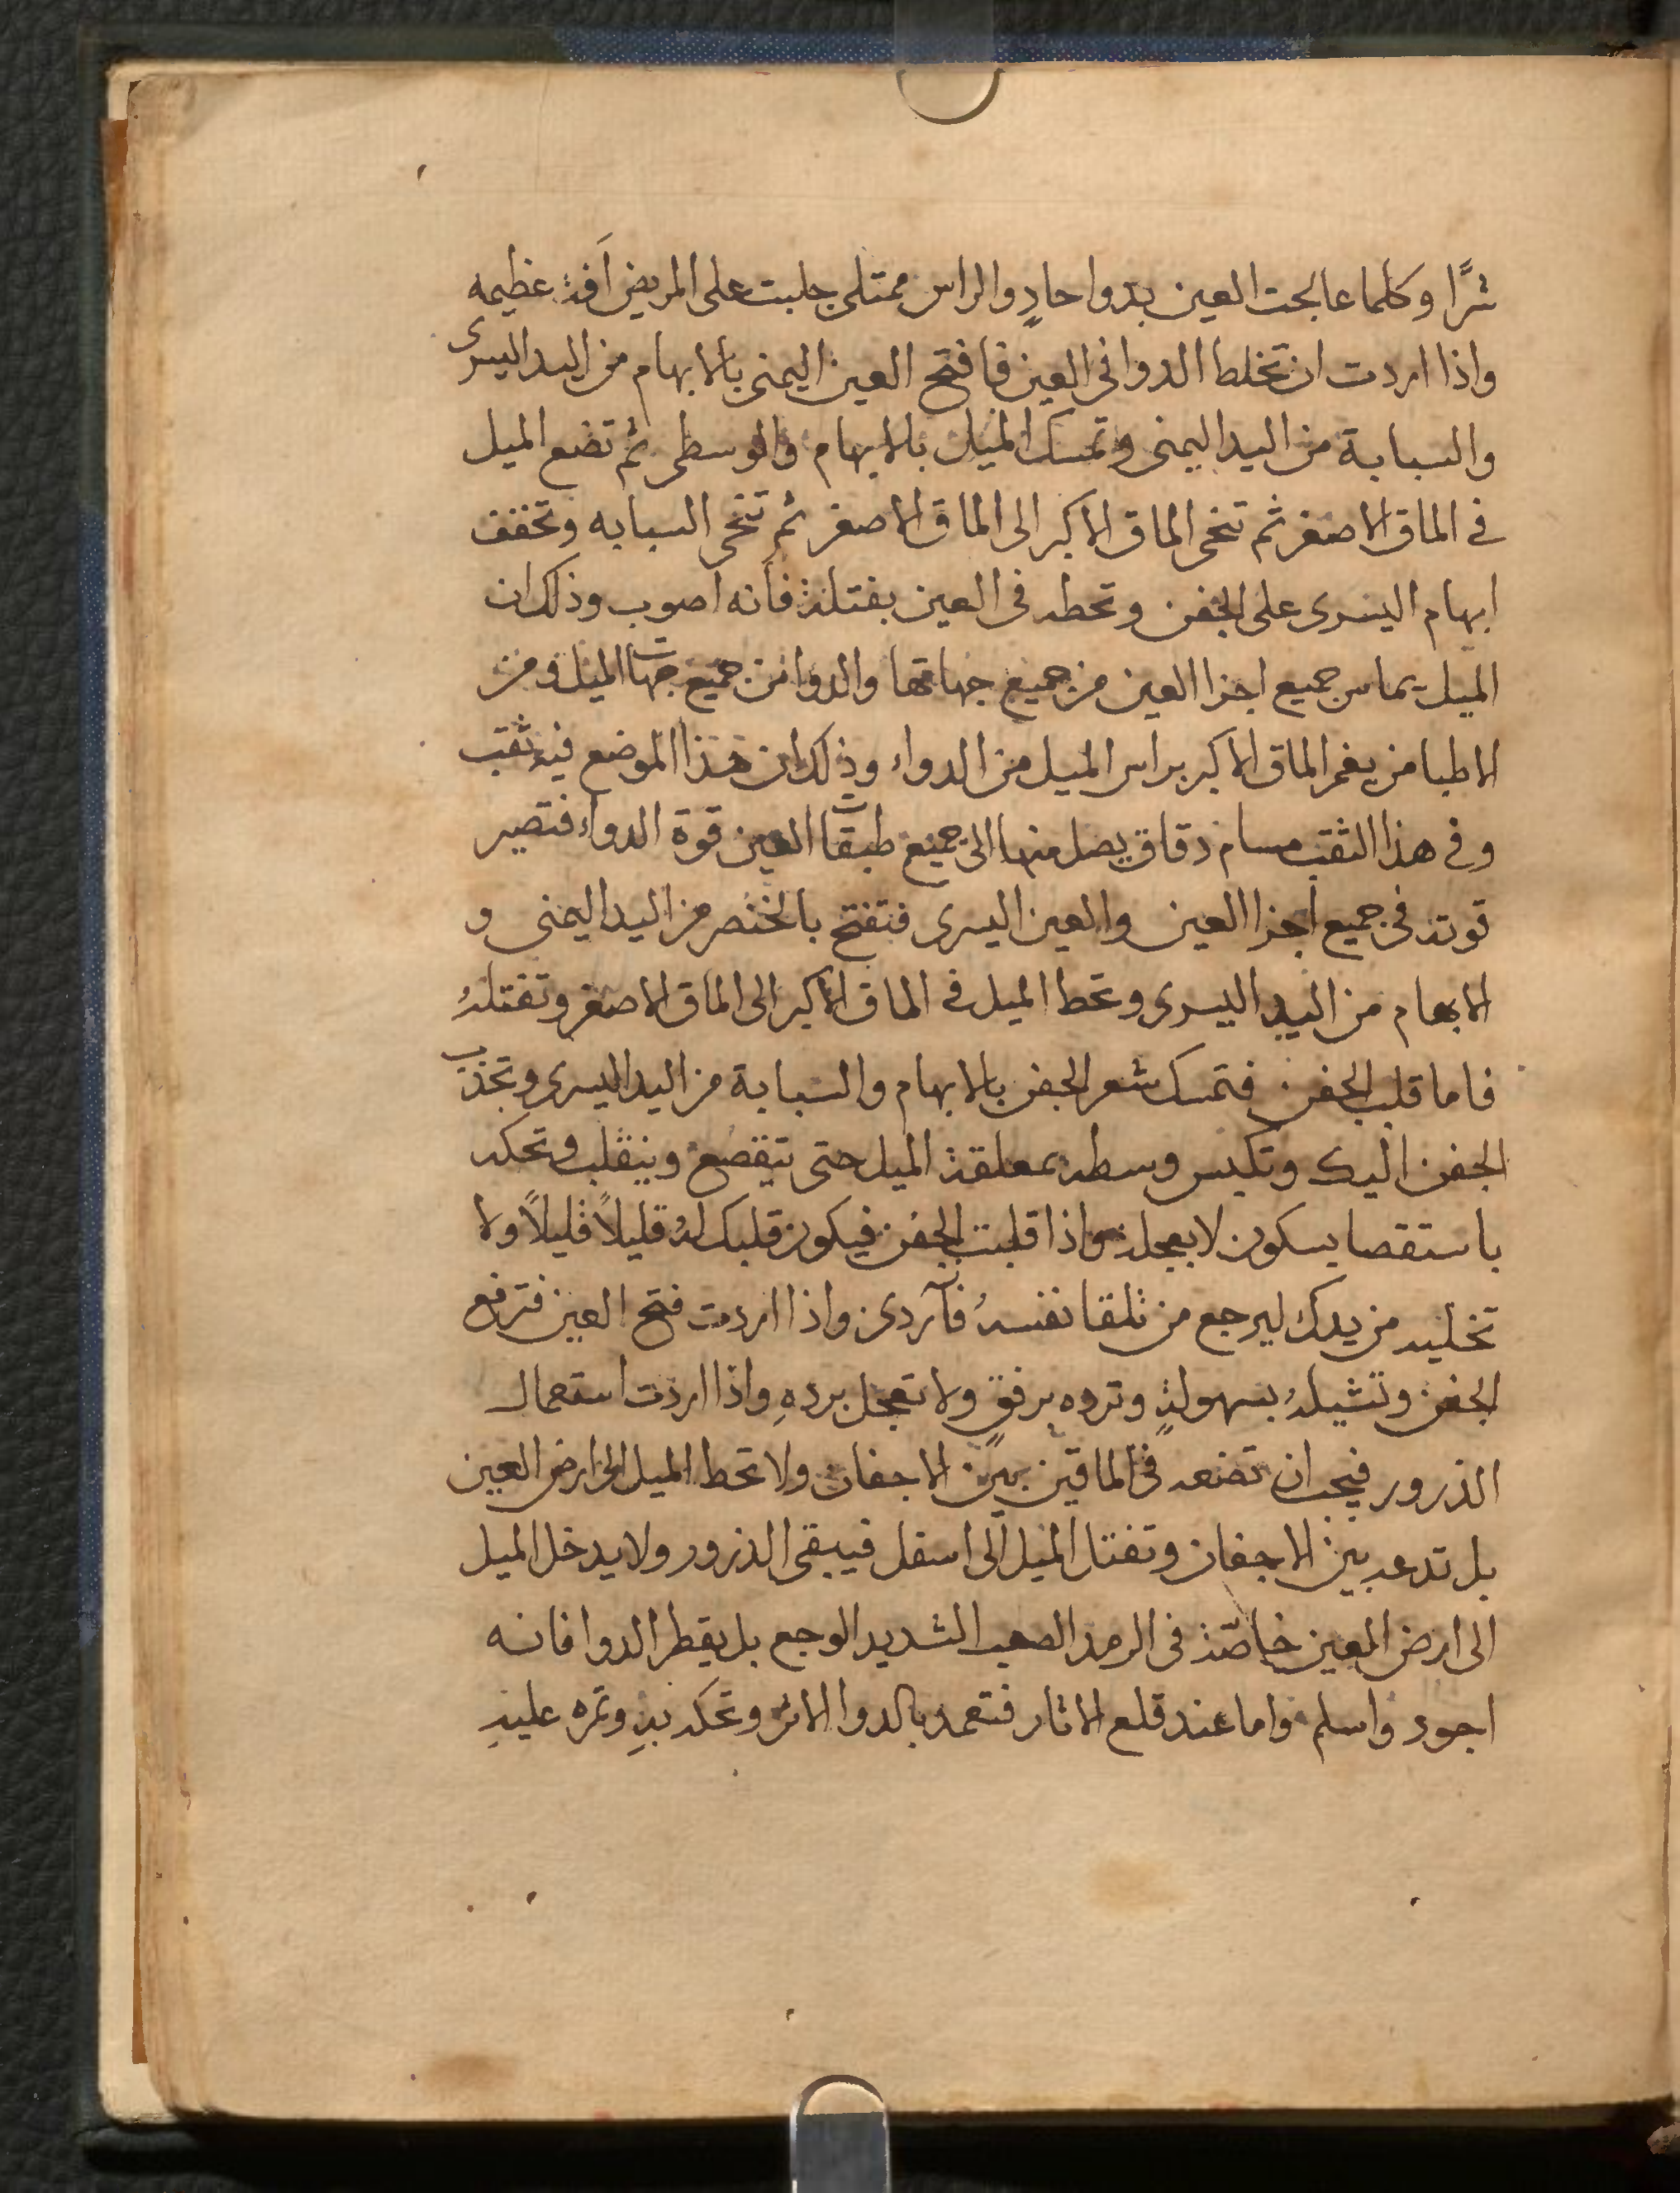 شرًا وكلما عالجت العين بدوا حادٍ والراس ممتلى جلبت على المريض آفة عظيمه
واذا اردت ان تخلط الدوا فى العين فافتح العين اليمنى بالابهام من اليد اليسرى
والسبابة من اليد اليمنى وتمسك الميل بالابهام والوسطى ثم تضع الميل
فى الماق الاصغر ثم تنحى الماق الاكبر الى الماق الاصغر ثم تنحى السبابه وتخفف
ابهام اليسرى على الجفن وتحطه فى العين بفتلة فأنه اصوب وذلك ان
الميل يماس جميع اجزا العين من جميع جهاتها والدوا من جميع جهات الميل ومن
الاطبا من يغمر الماق الاكبر براس الميل من الدواء وذلك ان هذا الموضع فيه ثقب
وفى هذا الثقب مسام دقاق يصل منها الى جميع طبقات العين قوة الدواء فتصير
قوته فى جميع اجزا العين والعين اليسرى فتفتح بالخنصر من اليد اليمنى و
الابهام من اليد اليسرى وتحط الميل فى الماق الاكبر الى الماق الاصغر وتفتلهُ
فاما قلب الجفن فتمسك شعر الجفن بالابهام والسبابة من اليد اليسرى وتجذب
الجفن اليك وتكبس وسطه بمعلقة الميل حتى يتقصع وينقلب وتحكه
باستقصا بسكون لا بعجلة واذا قلبت الجفن فيكون قلبك لهُ قليلاً قليلاً ولا
تخليه من يدك ليرجع من تلقا نفسهُ فآنه ردى واذا اردت فتح العين فترفع
الجفن وتشيلهُ بسهولةٍ وتروه برفقٍ ولا تعجل بردهِ واذا اردت استعمال
الذرور فيجب ان تضعه فى الماقين بين الاجفان ولا تحط الميل الى ارض العين
بل تدعه بين الاجفان وتفتل الميل الى اسفل فيبقى الذرور ولا يدخل الميل
الى ارض العين خاصّة فى الرمد الصعب الشديد الوجع بل يقطر الدوا فانه
اجود واسلم واما عند قلع الاثار فتعمد بالدوا الاثر وتحكه بهِ وتمره عليهِ